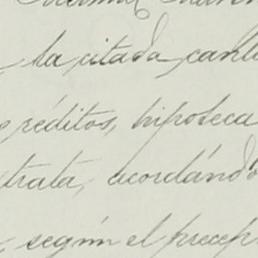 la citada cant
réditos, hipoteca
trata, acordándo
según el precep